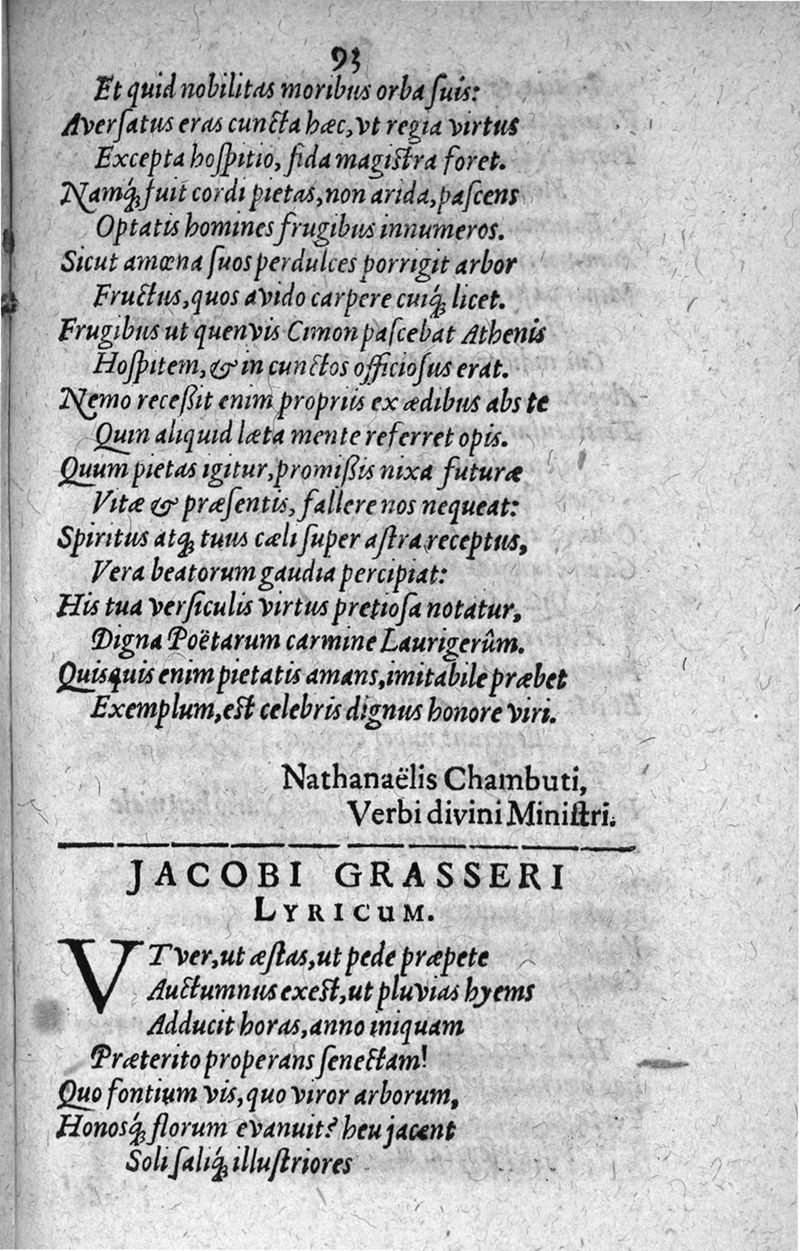 93
Et quid nobilitas moribus orba ſuis:
Averſatus eras cuncta hæc, vt regia virtus
Excepta hoſpitio, fida magiſtra foret.
Namq́; fuit cordi pietas, non arida, paſcens
Optatis homines frugibus innumeros.
Sicut amœna ſuos perdulces porrigit arbor
Fructus, quos avido carpere cuiq́; licet.
Frugibus ut quenvis Cimon paſcebat Athenis
Hoſpitem, & in cunctos officioſus erat.
Nemo receßit enim propriis ex ædibus abs te
Quin aliquid læta mente referret opis.
Quum pietas igitur, promißis nixa futuræ
Vitæ & præſentis, fallere nos nequeat:
Spiritus atq; tuus cæli ſuper aſtra receptus,
Vera beatorum gaudia percipiat:
His tua verſiculis virtus pretioſa notatur,
Digna Poëtarum carmine Laurigerûm.
Quisquis enim pietatis amans, imitabile præbet
Exemplum, eſt celebris dignus honore viri.
Nathanaëlis Chambuti,
Verbi divini Miniſtri.
JACOBI GRASSERI
LYRICUM.
VT ver, ut æſtas, ut pede præpete
Auctumnus exeſt, ut pluvias hyems
Adducit horas, anno iniquam
Præterito properans ſenectam!
Quo fontium vis, quo viror arborum,
Honosq́; florum evanuit? heu jacent
Soli ſaliq́; illuſtriores